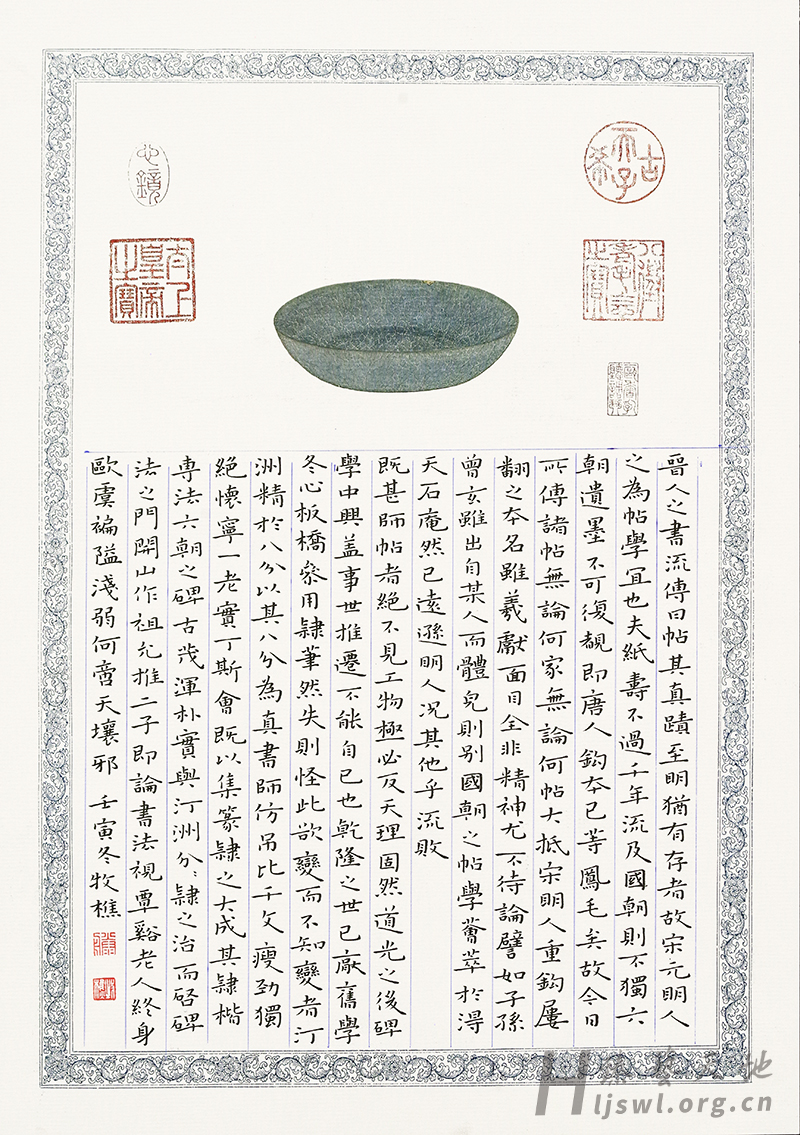 古希天子
八徵耄念之寶
太上皇帝之寶
晉人之書流傳曰帖其真蹟至明猶有存者故宋元明人
之為帖學宜也夫紙壽不過千年流及國朝則不獨六
朝遺墨不可復覩即唐人鈎本已等鳳毛矣故今日
所傳諸帖無論何家無論何帖大抵宋明人重鈎屢
翻之本名雖羲獻面目全非精神尤不待論譬如子孫
曾玄雖出自某人而體皃則别國朝之帖學薈萃於淂
天石庵然已遠遜明人况其他乎流敗
既甚師帖者絕不見工物極必反天理固然道光之後碑
學中興盖事世推遷不能自已也乾隆之世已厭舊學
冬心板橋參用隸筆然失則怪此欲變而不知變者汀
洲精於八分以其八分為真書師仿吊比干文瘦劲獨
絕懷寧一老實丁斯會既以集篆隸之大成其隸楷
専法六朝之碑古茂渾朴實與汀洲分〻隸之治而啓碑
法之門開山作祖允推二子即論書法視覃谿老人終身
歐虞褊隘淺弱何啻天壤邪 壬寅冬牧樵
ljswl.org.cn